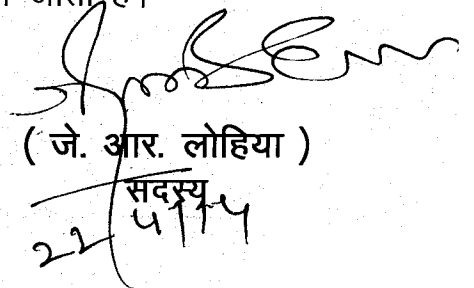 जाता है।
( जे. आर. लोहिया )
सदस्य
22/4/14